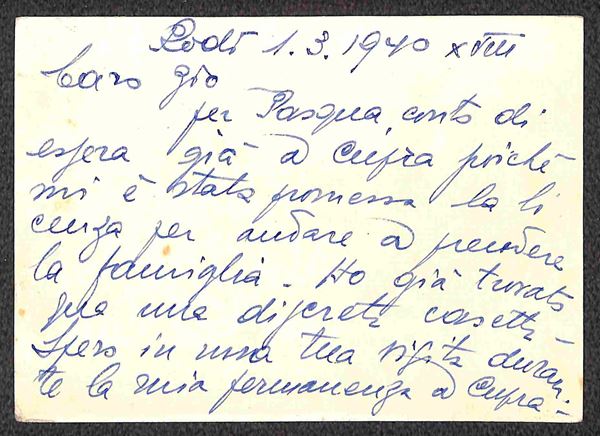 Rodi 1.3.1940 XVIII
Caro Gio
per Pasqua conto di
essera già a Cupra poiché
mi è stata promessa la li
cenza per andare a prendere
la famiglia. Ho già trovato
qua una discreta casetta
Spero in una tua visita duran-
te la mia permanenza a Cupra-